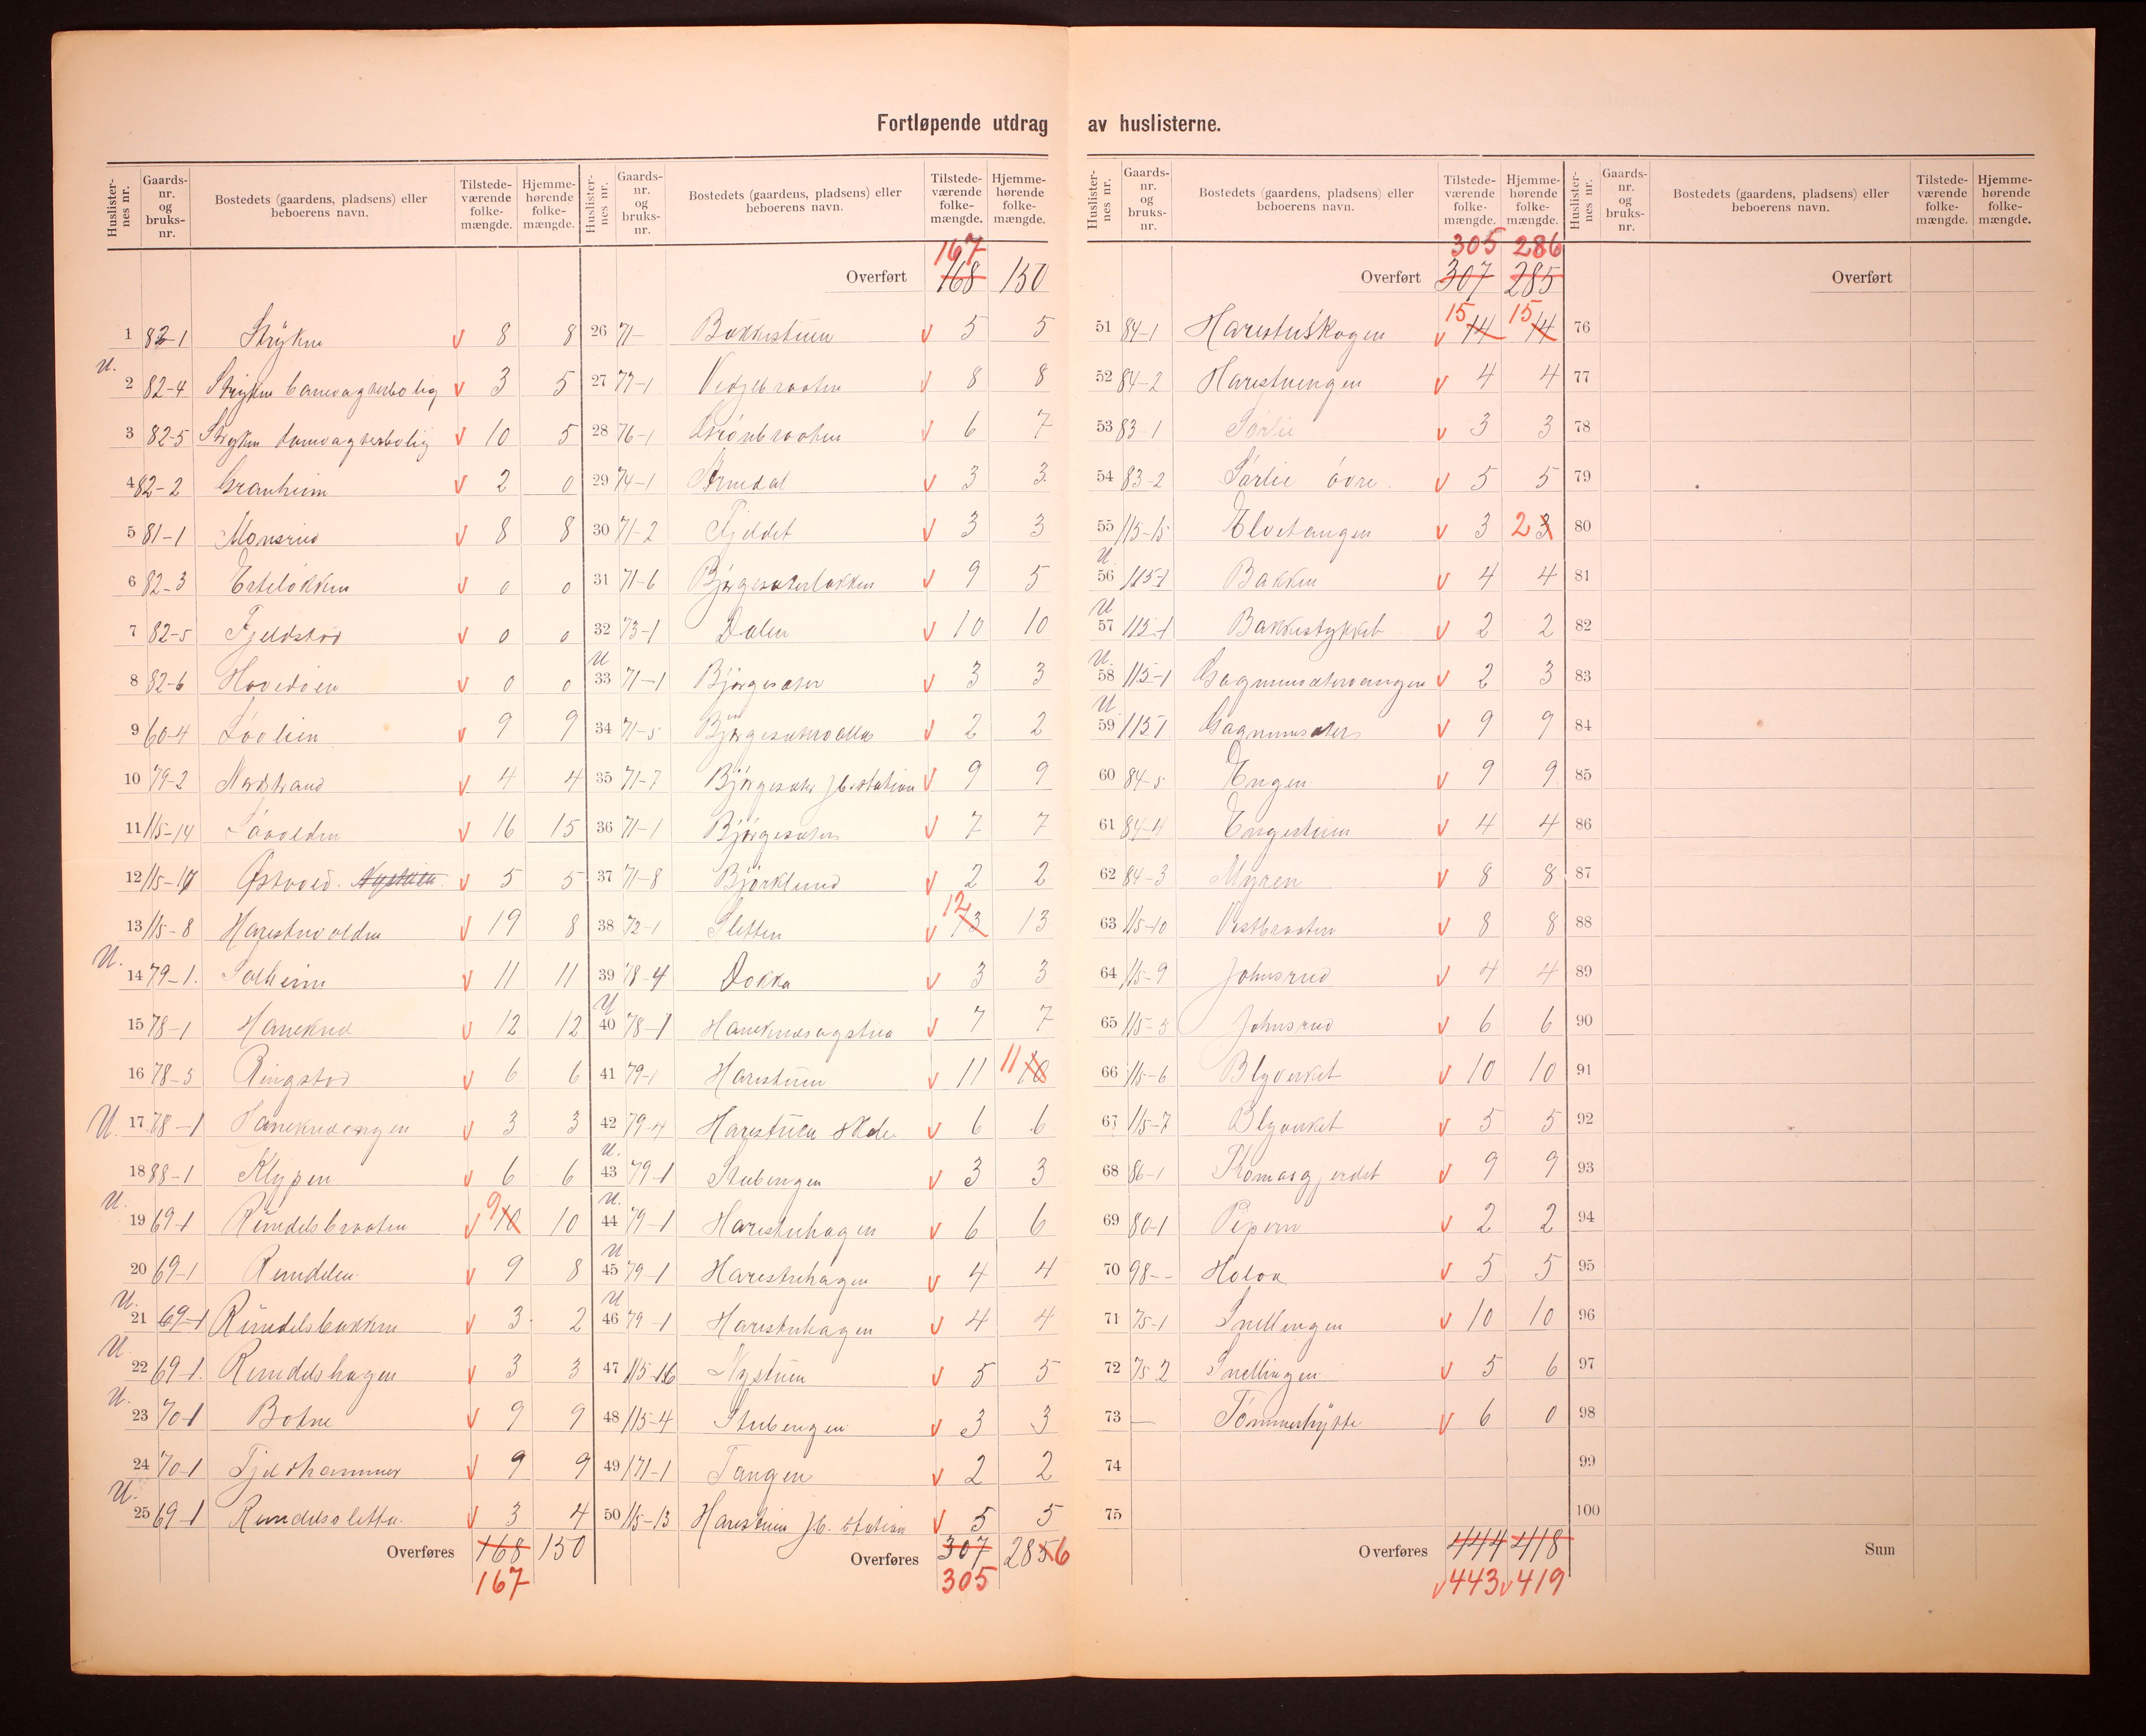 Fortløpende utdrag av huslisterne.
Huslister-nes nr. Gaards-nr. og bruks-nr. Bostedets (gaardens, pladsens) eller beboerens navn. Tilstede-værende folke-mængde. Hjemme-hørende folke-mængde.
1 82-1 Stryken v 8 8
U. 2 82-4 Stryken banevagterbolig v 3 5
3 82-5 Stryken banevagterbolig v 10 5
4 82-2 Granheim v 2 0
5 81-1 Monsrud v 8 8
6 82-3 v 0 0
7 82-5 Fjeldstad v 0 0
8 82-6 v 0 0
9 60-4 Lövlien v 9 9
10 79-2 Nordstrand v 4 4
11 115-14 v 16 15
12 115-17 Østvold. Nystuen v 5 5
13 115-8 Harestuvolden v 19 8
U. 14 79-1. Solheim v 11 11
15 78-1 Haneknd v 12 12
16 78-3 Ringstad v 6 6
U. 17 78-1 v 3 3
18 88-1 Klypen v 6 6
U. 19 69-1 Rundelsbraaten v 9 10 10
20 69-1 Rundelen v 9 8
U. 21 69-1 Rundelsbakken v 3 2
U. 22 69-1. Rundelshagen v 3 3
U. 23 70-1 Botne v 9 9
24 70-1 Fjeldhammer v 9 9
U. 25 69-1 Rundelsletta. v 3 4
Overføres 168 150
167
Huslister-nes nr. Gaards-nr. og bruks-nr. Bostedets (gaardens, pladsens) eller beboerens navn. Tilstede-værende folke-mængde. Hjemme-hørende folke-mængde.
167
Overført 168 150
26 71- Bakkestuen v 5 5
27 77-1 v 8 8
28 76-1 Grönbraaten v 6 7
29 74-1 v 3 3
30 71-2 Fjeldet v 3 3
31 71-6 Bjørgesæterløkken v 9 5
32 73-1 Dalen v 10 10
U 33 71-1 Bjørgesæter v 3 3
34 71-5 v 2 2
35 71-7 Bjørgesæter Jb. station v 9 9
36 71-1 Bjørgesæter v 7 7
37 71-8 Bjørklund v 2 2
38 72-1 Sletten v 12 13 13
39 78-4 Dokka v 3 3
U 40 78-1 v 7 7
41 79-1 Harestuen v 11 11 10
42 79-4 Harestuen skole v 6 6
U. 43 79-1 Stubengen v 3 3
U. 44 79-1 Harestuhagen v 6 6
U 45 79-1 Harestuhagen v 4 4
U 46 79-1 Harestuhagen v 4 4
47 115-16 Nystuen v 5 5
48 115-4 Stubengen v 3 3
49 171-1 Tangen v 2 2
50 115-13 Harestuen Jb. station v 5 5
Overføres 307 2856
305
Huslister-nes nr. Gaards-nr. og bruks-nr. Bostedets (gaardens, pladsens) eller beboerens navn. Tilstede-værende folke-mængde. Hjemme-hørende folke-mængde.
305 286
Overført 307 285
51 84-1 Harestuskogen v 15 14 15 14
52 84-2 Harestuengen v 4 4
53 83-1 Sörlie v 3 3
54 83-2 Sörlie övre. v 5 5
55 115-15 Elvetangen v 3 2 3
U. 56 115-1 Bakken v 4 4
U 57 115-1 Bakkestykket v 2 2
U. 58 115-1 v 2 3
U. 59 115-1 v 9 9
60 84-5 Engen v 9 9
61 84-4 Engestuen v 4 4
62 84-3 Myren v 8 8
63 115-10 Vestbraaten v 8 8
64 115-9 Johnsrud v 4 4
65 115-5 Johnsrud v 6 6
66 115-6 Blyverket v 10 10
67 115-7 Blyverket v 5 5
68 86-1 Thomasgjerdet v 9 9
69 80-1 Pipern v 2 2
70 98-- Holoa v 5 5
71 75-1 Snellingen v 10 10
72 75 2 Snellingen v 5 6
73 — Tömmerhytte v 6 0
74
75
Overføres 444 418
v443 v419
Huslister-nes nr. Gaards-nr. og bruks-nr. Bostedets (gaardens, pladsens) eller beboerens navn. Tilstede-værende folke-mængde. Hjemme-hørende folke-mængde.
Overført
76
77
78
79
80
81
82
83
84
85
86
87
88
89
90
91
92
93
94
95
96
97
98
99
100
Sum